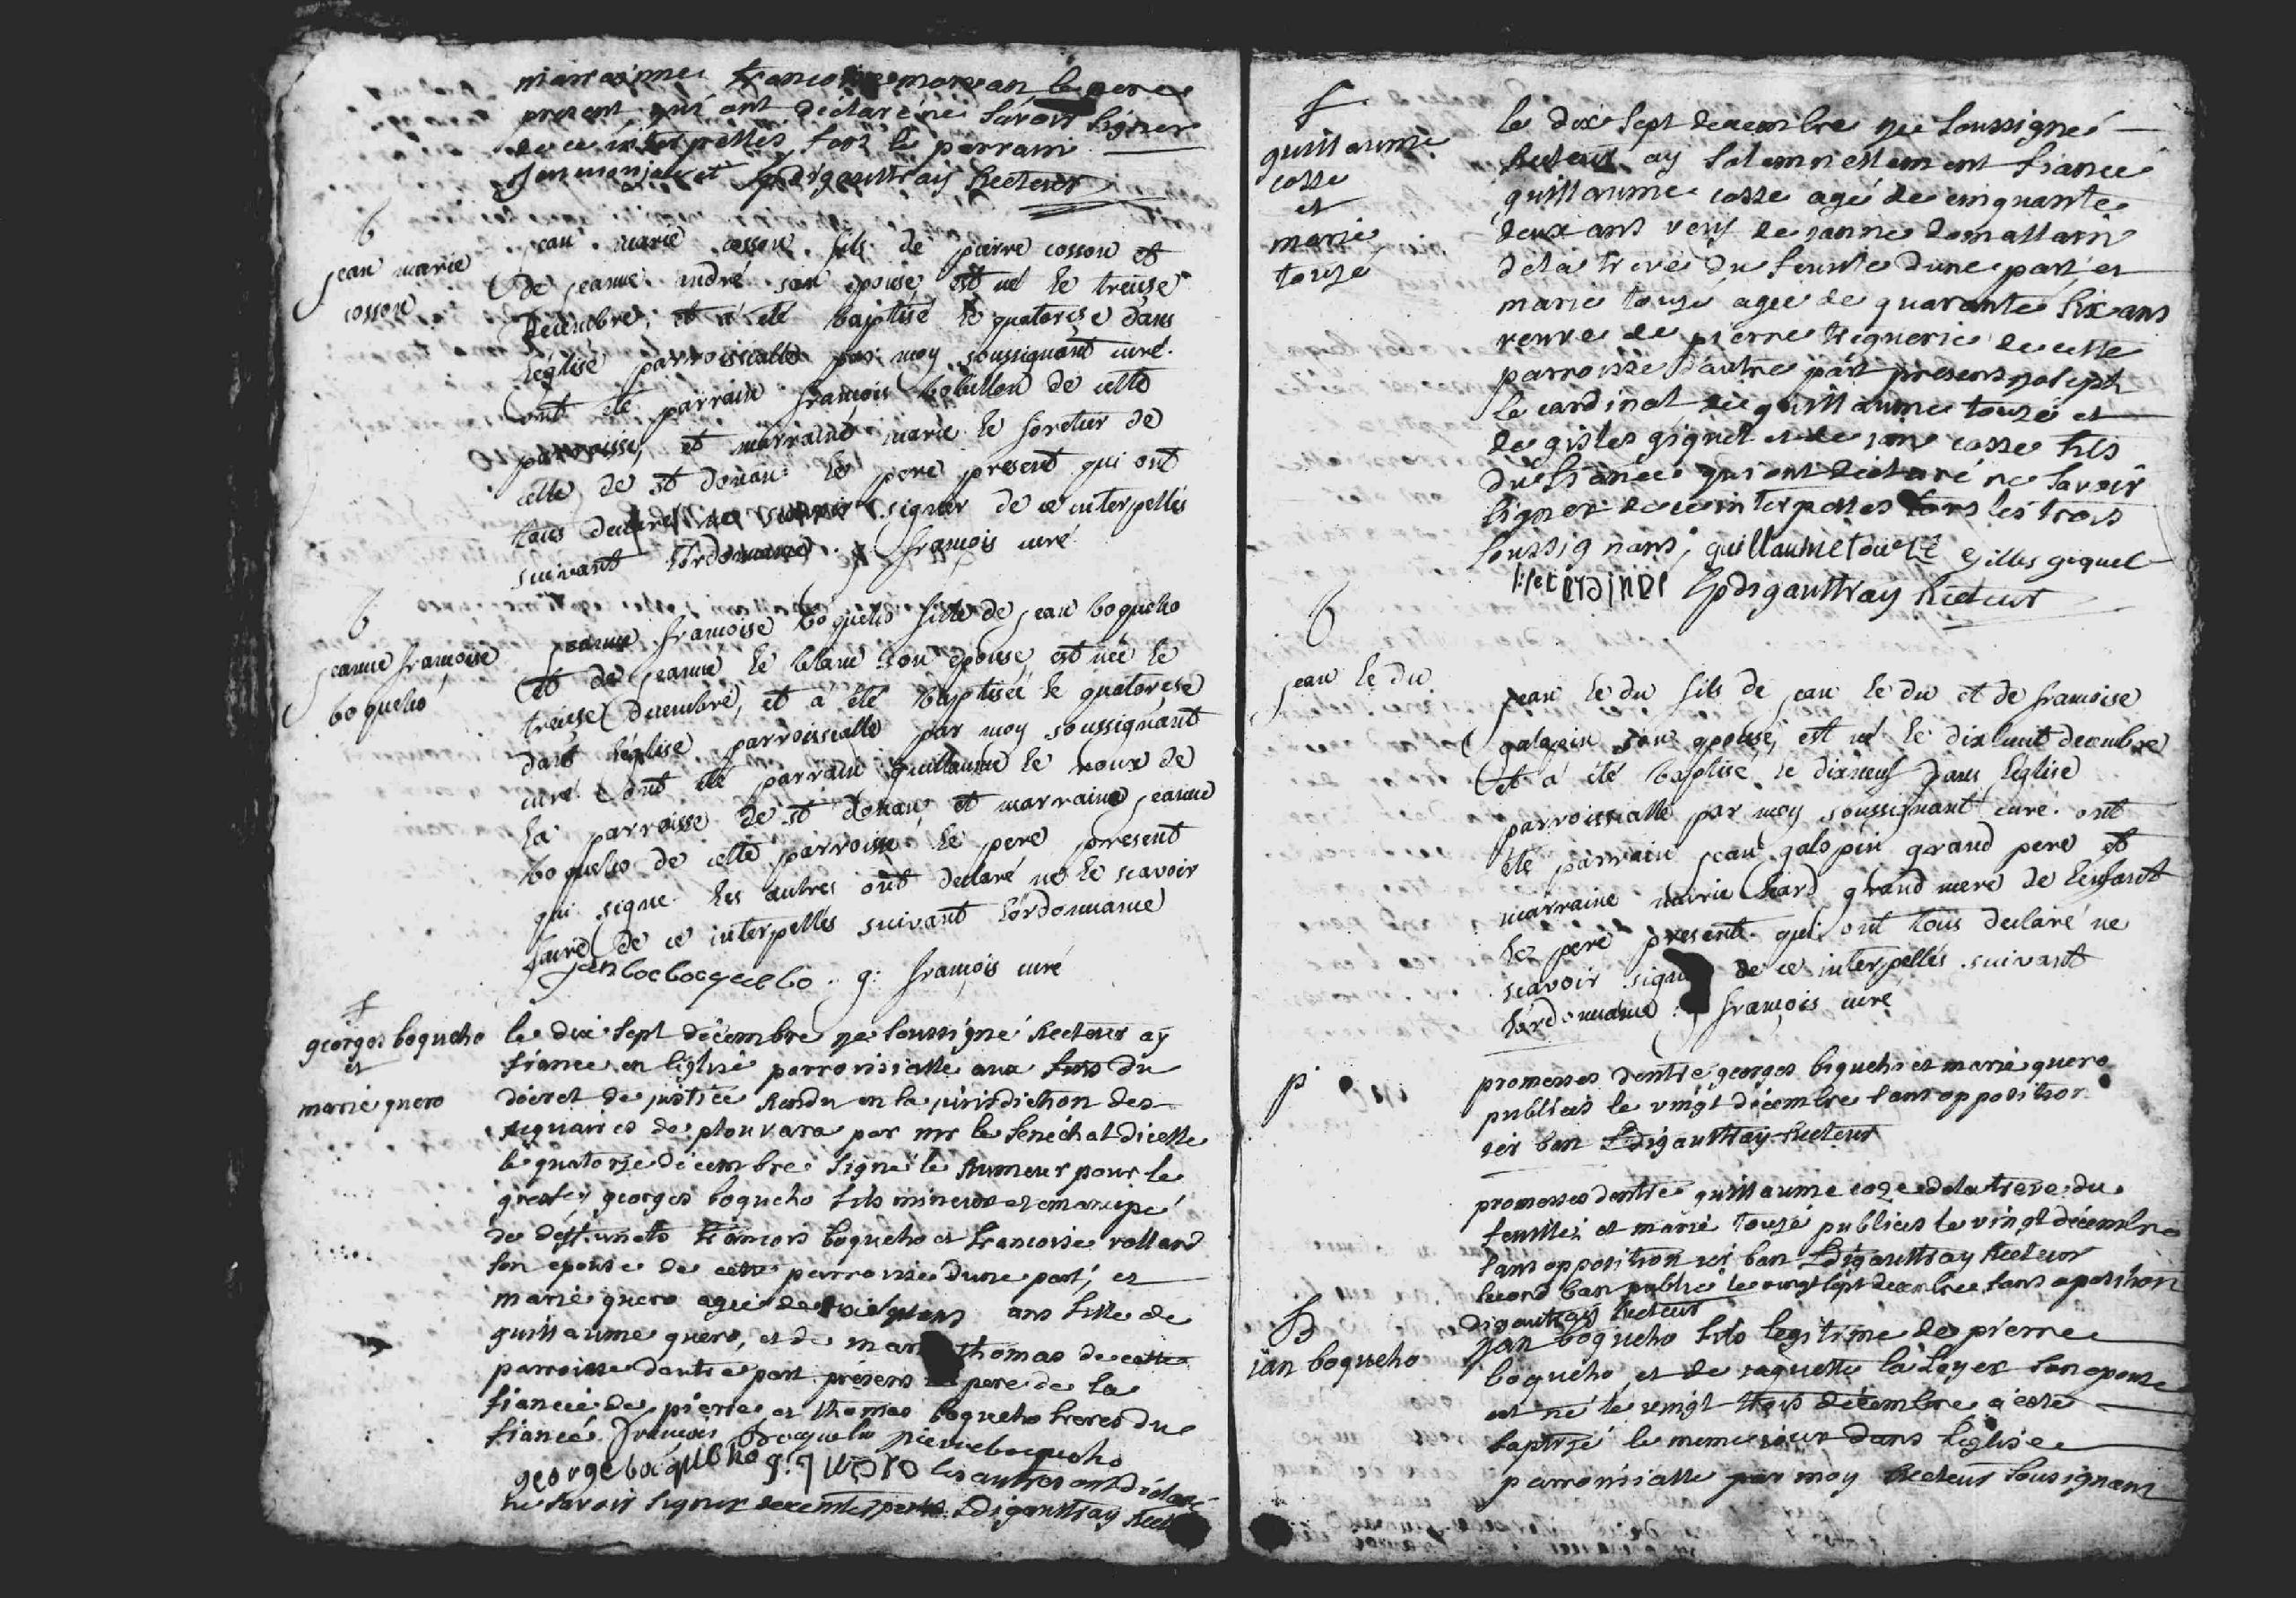 marrainne francoise morvan le pere
present qui ont déclaré ne savoir signer
de ce interpellés fors le parrain
rigaultray Recteur
b
jean marie
cosson
jean marie cosson fils de pierre cosson et
de jeanne andré son epouse est né le treise
decembre, et a été baptisé le quatorze dans
l'église parroissialle par moy soussignant curé.
ont été parrain françois botuellon de cette
parroisse, et marraine marie le foretier de
celle de st donan le pere present qui ont
tous declaré ne scavoir signer de ce interpellés
suivant l'ordonnance. g françois curé
b
jeanne françoise
boqueho
jeanne françoise boqueho fille de jean boqueho
et de jeanne le blanc son epouse, est née le
treise decembre, et a été baptisée le quatorese
dans l'église parroissialle par moy soussignant
curé ont été parrain guillaume le roux de
la parroisse de st donan, et marraine jeanne
boqueho de cette parroisse. le pere present
qui signe. les autres ont declaré ne le scavoir
faire de ce interpellés suivant l'ordonnance
g: françois curé
f
georges boqueho
et
marie quero
le dix sept décembre je soussigné Recteur ay
fiancé en l'église parroissialle aux fins du
décret de justice Rendu en la jurisdiction des
reguaires de plouvara par mr le senechal d'icelle
le quatorze décembre signé le Rumeur pour le
greffe, georges boqueho fils mineur et emancipé
de deffuncts francois boqueho et francoise rolland
son epouse de cette parroisse d'une part, et
marie quero agée de ans fille de
guillaume quero, et de marie thomas de cette
parroisse dautre part. présens le pere de la
fiancée de pierre et thomas boqueho freres du
fiancé. françois Bocqueho pierre bocqueho
george bocqueho g: quero les autres ont déclaré
ne savoir signer de ce interpellés. rigaultray Rect
f
guillaume
cosse
et
marie
touzé
le dix sept decembre je soussigné
Recteur ay solemnellement fiancé
guillaume cosse agé de cinquante
deux ans veuf de janne domallain
de la treve du d'une part et
marie touzé agée de quarante six ans
veuve de pierre de cette
parroisse d'autre part presens joseph
le cardinal de guillaume touzé et
de gisles giquel et de jan cosse fils
du fiancé qui ont déclaré ne savoir
signer de ce interpellés fors les trois
soussignans, guillaume touzé gilles giquel
rigaultray Recteur
b
jean le du
jean le du fils de jean le du et de françoise
galopin son epouse, est né le dixhuit decembre
et a été baptisé le dixneuf dans l'église
parroissialle par moy soussignant curé. ont
été parrain jean galopin grand pere et
marraine marie heard grand mere de l'enfant
le pere present. qui ont tous declaré ne
scavoir signer de ce interpellés suivant
l'ordonnance. g françois curé
p
promesses dentre georges boqueho et marie quero
publiées le vingt décembre sans opposition
1er ban rigaultray Recteur
promesses dentre guillaume coze de la treve du
et marie touzé publiées le vingt décembre
sans opposition 1er ban rigaultray Recteur
second ban publié le vingt sept decembre sans oposition
rigaultray Recteur
B
jan boqueho
jan boqueho fils legitime de pierre
boqueho, et de jaquette la loyer son epouse
est né le vingt trois décembre a esté
baptizé le meme jour dans l'église
parroissialle par moy Recteur soussignant